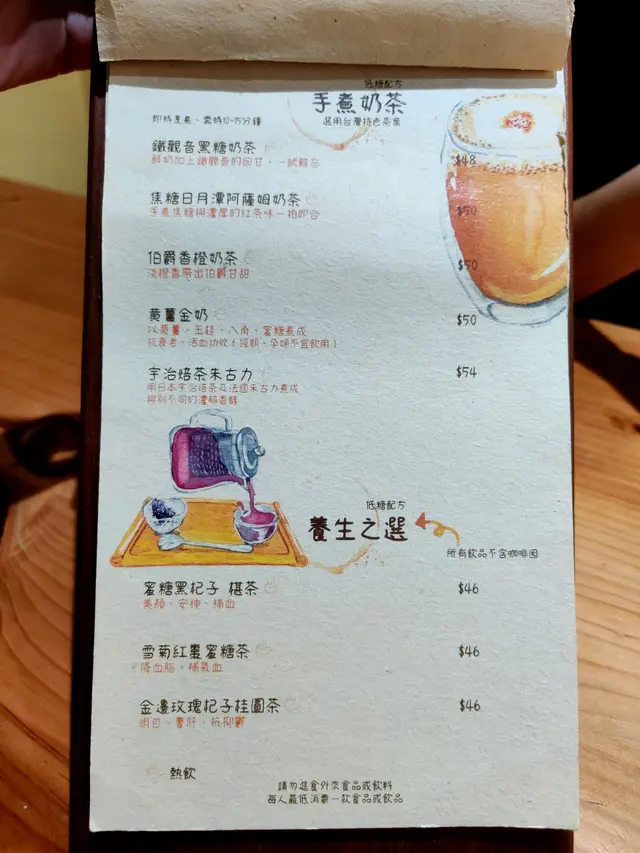 低糖配方
手煮奶茶
即時烹煮、需時10-15分鐘
選用台灣特色茶葉
鐵觀音黑糖奶茶 $48
鮮奶加上鐵觀音的回甘，一試難忘
焦糖日月潭阿薩姆奶茶 $50
手煮焦糖與濃厚的紅茶味一拍即合
伯爵香橙奶茶 $50
淡橙香帶出伯爵甘甜
黃薑金奶 $50
以黃薑、玉桂、八角、蜜糖煮成
抗衰老、活血功效（經期、孕婦不宜飲用）
宇治焙茶朱古力 $54
用日本宇治焙茶及法國朱古力煮成
與別不同的濃郁香醇
低糖配方
養生之選
所有飲品不含咖啡因
蜜糖黑杞子 椹茶 $46
美顏、安神、補血
雪菊紅棗蜜糖茶 $46
降血脂、補氣血
金邊玫瑰杞子桂圓茶 $46
明目、養肝、抗抑鬱
熱飲
請勿進食外來食品或飲料
每人最低消費一款食品或飲品